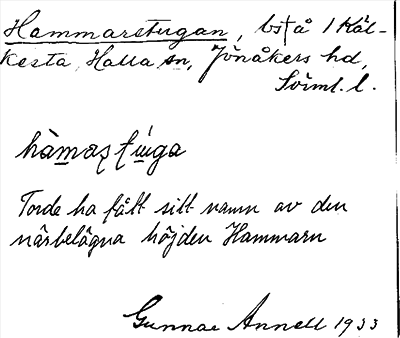 Hammarstugan, bs†å 1 Käl-
kesta, Halla sn, Jönåkers hd,
Södml. l.
Torde ha fått sitt namn av den
närbelägna höjden Hammarn
Gunnar Annell 1933